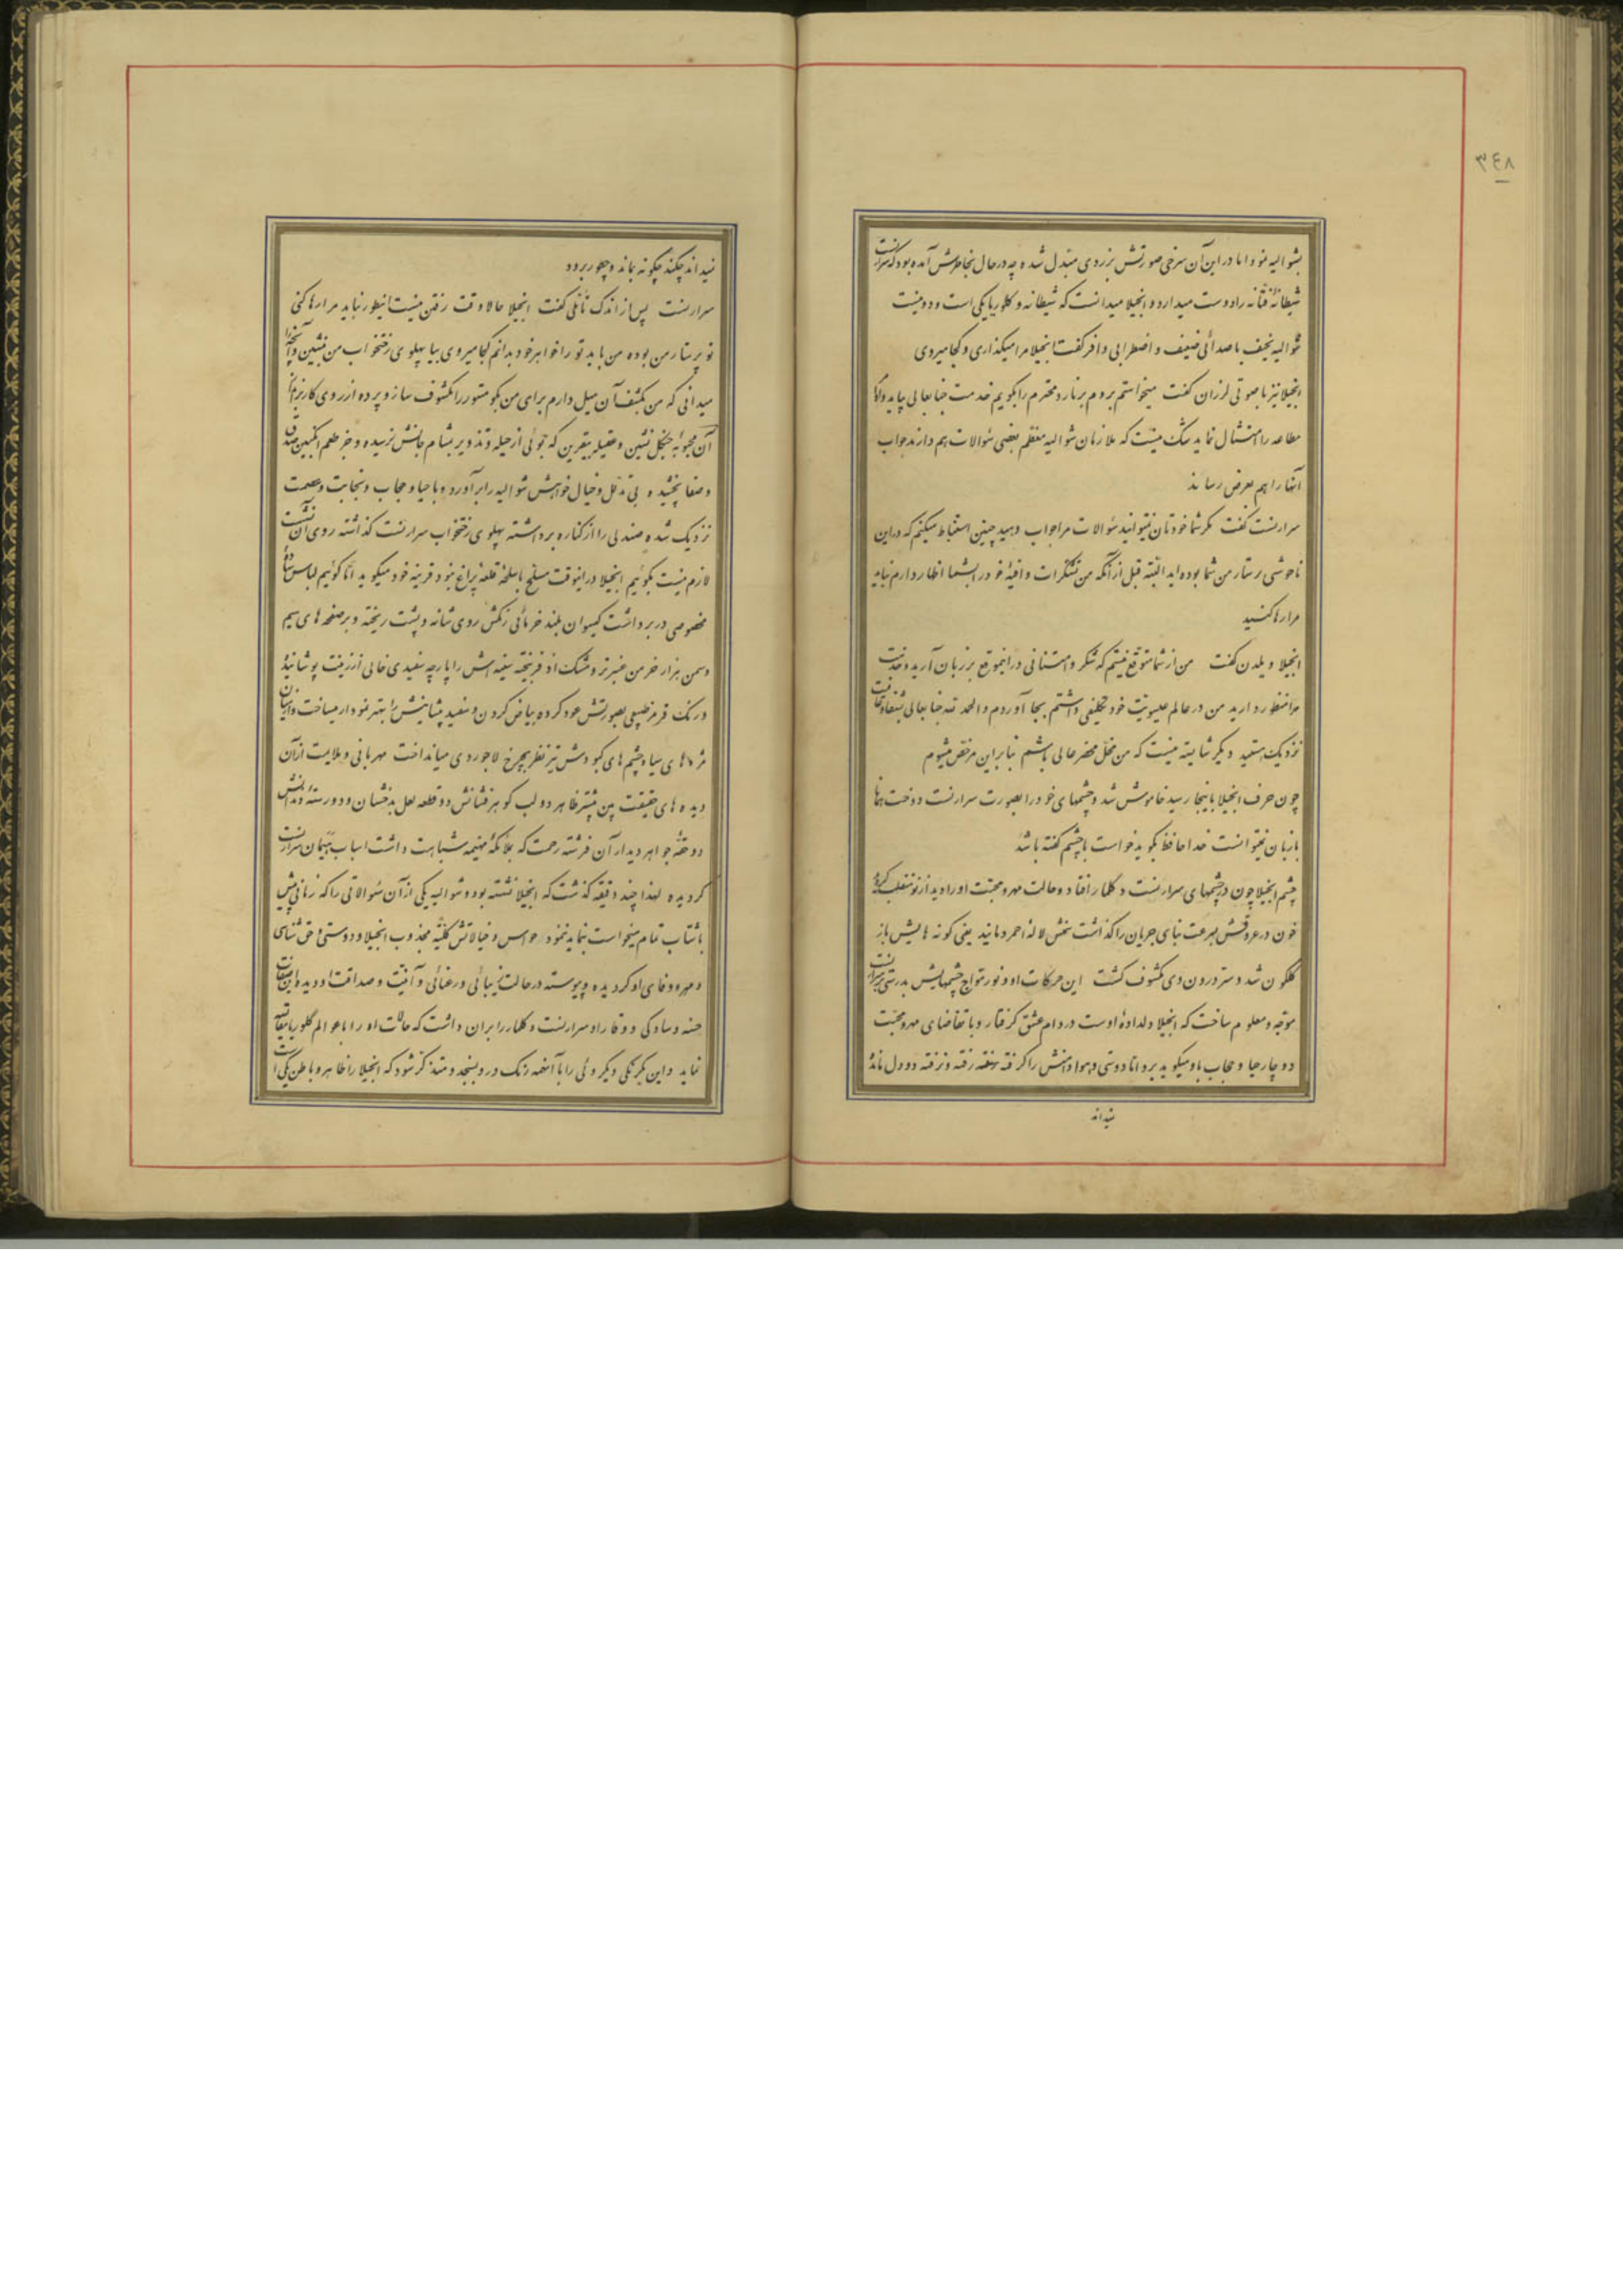 ٣٤٨
بشوالیه نمود اما در این آن سرخی صورتش بزردی مبتدل شده چه در حال بخاطرش آمده بود که سرارنست
شیطانهٔ فتّانه را دوست میدارد و انجیلا میدانست که شیطانه و کلوریا یکی است و دو نیست
شوالیه نحیف با صدائی ضعیف و اضطرابی وافر گفت انجیلا مرا میگذاری و کجا میروی
انجیلا نیز با صوتی لرزان گفت میخواستم بروم برنارد محترم را بگویم خدمت جنابعالی بیاید و اگر
مطاعه را امتثال نماید شک نیست که ملازمان شوالیه معظم بعضی سئوالات هم دارند جواب
آنها را هم بعرض رساند
سرارنست گفت مگر شما خودتان نمیتوانید سئوالات مرا جواب دهید چنین استنباط میکنم که در این
ناخوشی پرستار من شما بوده‌اید البته قبل از آنکه من تشکرات وافیهٔ خود را بشما اظهار دارم نباید
مرا رها کنید
انجیلا ویلدن گفت من از شما متوقع نیستم که شکر و امتنانی در اینموقع بر زبان آرید و خدمت
مرا منظور دارید من در عالم عیسویت خود تکلیفی داشتم بجا آوردم و الحمد لله جنابعالی بشفا و عافیت
نزدیک هستید دیگر شایسته نیست که من مخل محضر عالی باشم بنابراین مرخص میشوم
چون حرف انجیلا باینجا رسید خاموش شد و چشمهای خود را بصورت سرارنست دوخت همانا
با زبان نمیتوانست خدا حافظ بگوید خواست با چشم گفته باشد
چشم انجیلا چون در چشمهای سرارنست دکلمار افتاد و حالت مهر و محبت او را دید از نو منقلب گردید
خون در عروقش بسرعت بنای جریان را گذاشت نخش لالهٔ احمر دمانید یعنی گونه هایش باز
گلگون شد و سرّ درون وی مکشوف گشت این حرکات او و نور متواج چشمهایش بدرستی بر سرارنست
موجه و معلوم ساخت که انجیلا دلدادهٔ اوست در دام عشق گرفتار و با تقاضای مهر و محبت
دوچار حیا و حجاب باو میگوید برو اما دوستی و هوا دامنش را گرفته رفته و نرفته دو دل مانده
نمیداند
نمیداند چکند چگونه بماند و چطور برود
سرارنست پس از اندک تأملی گفت انجیلا حالا وقت رفتن نیست اینطور نباید مرا رها کنی
تو پرستار من بوده من باید تو را خواهر خود بدانم کجا میروی بیا پهلوی رختخواب من بنشین و آنچه را
میدانی که من بکشف آن میل دارم برای من بگو مستور را مکشوف ساز و پرده از روی کار بردار
آن محبوبهٔ جنگل نشین و عقیلهٔ بیقرین که بوئی از حیله و تذویر بمشام جانش نرسیده و جز طعم انگبین صدق
و صفا نچشیده بی تأمل و خیال خواهش شوالیه را برآورد و با حیا و حجاب و نجابت و عصمت
نزدیک شده صندلی را از کناره برداشته پهلوی رختخواب سرارنست گذاشته روی آن نشست
لازم نیست بگوئیم انجیلا در اینوقت مسلح باسلحهٔ قلعه پراغ نبود قرینه خود میگوید اما گوئیم لباس سادهٔ
مخصوصی در بر داشت گیسوان بلند خرمائی رنگش روی شانه و پشت ریخته و بر صفحه های سیم
و سمن هزار خرمن عنبر تر و مشک اذفر بیخته سینه‌اش را پارچه سفیدی خالی از زینت پوشانیدهٔ
و رنگ قرمز طبیعی بصورتش عود کرده بیاض گردن و سفید پیشانیش را بهتر نمودار میساخت و از میان
مژه های سیاه چشم های کبودش تیز نظر بچرخ لاجوردی میانداخت مهربانی و ملایمت از آن
دیده های حقیقت بین منتشر ظاهر دو لب گوهر فشانش دو قطعه لعل بدخشان و دو رستهٔ دندانش
دو حقهٔ جواهر دیدار آن فرشته رحمت که بملائکهٔ مهیمه شباهت داشت اسباب هیمان سرارنست
گردیده لهذا چند دقیقه گذشت که انجیلا نشسته بود و شوالیه یکی از آن سئوالاتی را که زمانی پیش
باشتاب تمام میخواست بنماید ننمود حواس و خیالاتش کلیّه مجذوب انجیلا و دوستی و حق شناسی
و مهر و وفای او گردیده و پیوسته در حالت زیبائی و رعنائی و آفیت و صداقت او دیده این صفات
حسنه و سادگی و وقار او سرارنست دکلمار را بر ان داشت که حالات او را با عوالم گلوریا مقایسه
نماید و این یکرنگی و یکروئی را با آنهمه رنگ در رو بسنجد و متذکر شود که انجیلا را ظاهر و باطن یکی است